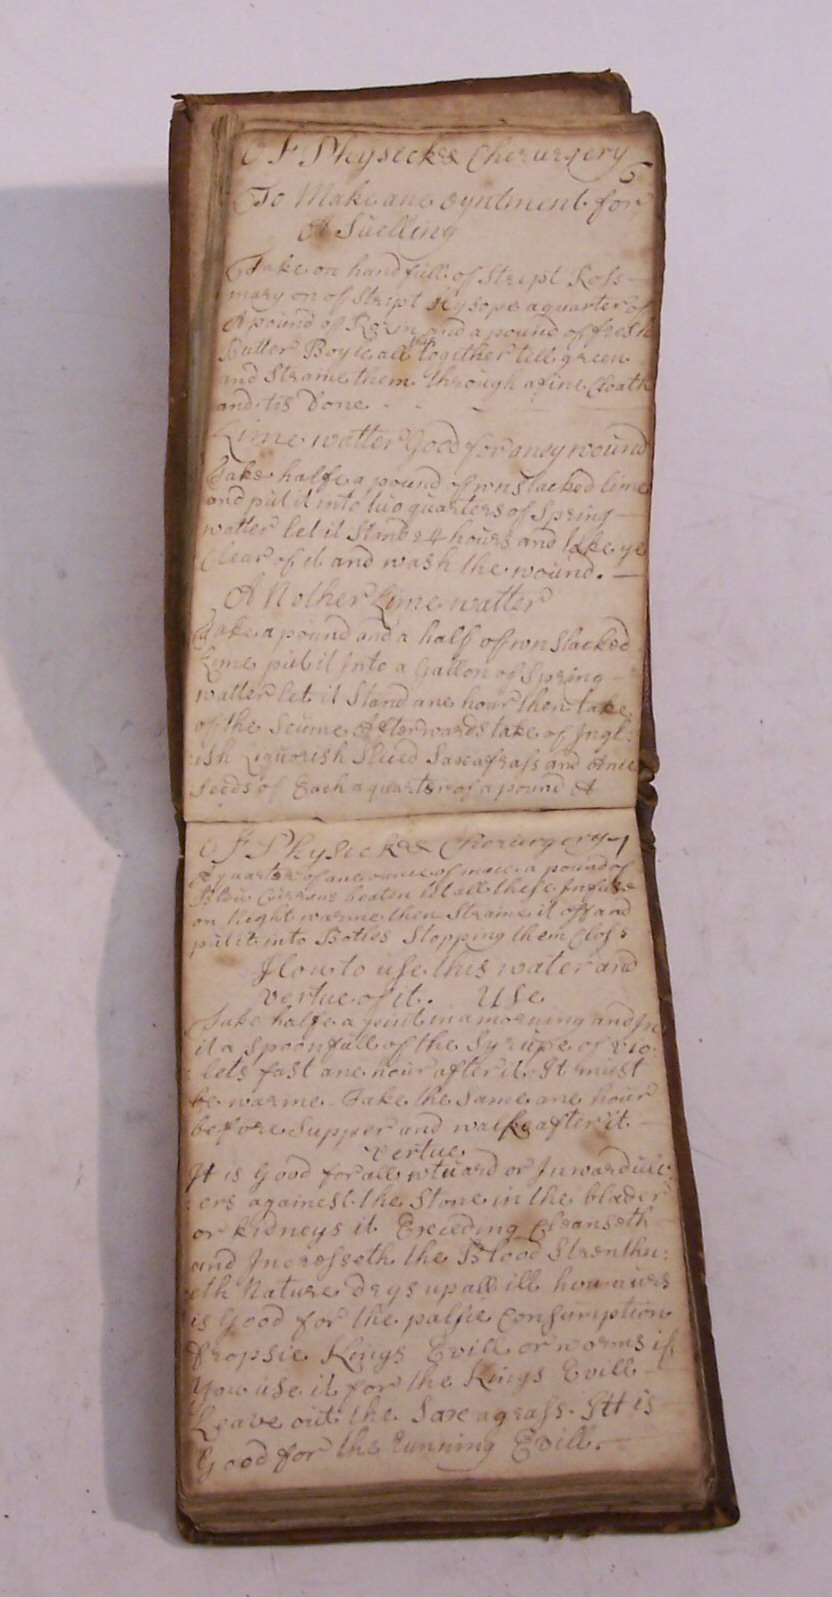 OF Physeck & Cherurgery
6
To Make ane oyntment for
A Suelling
Take on handfull of Stript Ross
mary on of Stript Hysope a quarter of
A pound of and a pound of fresh
Butter Boyle all together tell green
and Straine them through a fine Cloath
and tis Done
Lime watter Good for aney wound
Take halfe a pound of wnslacked lime
and put it into tuo quarters of Spring
watter let it Stand 24 hours and take ye
Clear of it and wash the wound.
A Nother Lime watter
Take a pound and a half of wnslacked
Lime put it Into a Gallon of Spring
watter let it Stand ane hour then take
of the Scume Afterwards take of Ingl:
ish Liquorish Sliced Saxafrass and Anie
Seeds of Each a quarter of a pound A
OF Physeck & Cherurgery 7
quarter of ane ounce of mace a pound of
Blew Currans beaten let all these Infuse
on Night warme then Straine it off and
put it into Botles Stopping them Closs
How to use this water and
vertue of it. Use
Take halfe a pint in a morning and In
it a Spoonfull of the Syrupe of vio:
lets fast ane hour after it It must
be warme Take the Same ane hour
before Supper and walke after it
vertue
It is Good for all wtuard or Inward ulc:
ers againest the Stone in the blader
or kidneys it Exceeding Cleanseth
and Incresseth the Blood Strenthn:
eth Nature Drys up all ill humours
is Good for the palsie Consumption
Dropsie Kings Evill or worms if
You use it for the Kings Evill
Leave out the Saxagrass. It is
Good for the running Evill.